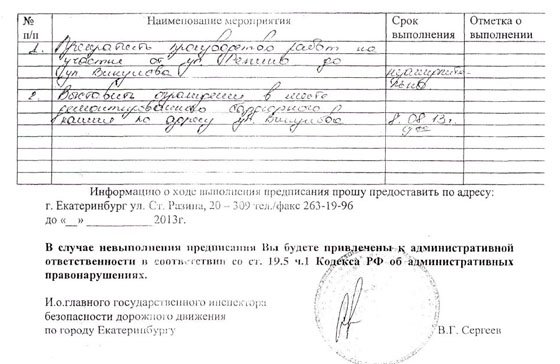 № п/п Наименование мероприятия Срок выполнения Отметка о выполнении
1. Прекратить производство работ на
участке от ул. Репина до
ул. Викулова
2. Выставить ограждения в месте
ремонтированного бордюрного
камня по адресу ул. Викулова 8.08.13г.
Информацию о ходе выполнения предписания прошу предоставить по адресу:
г. Екатеринбург ул. Ст. Разина, 20 – 309 тел./факс 263-19-96
до «__» ____________ 2013г.
В случае невыполнения предписания Вы будете привлечены к административной
ответственности в соответствии со ст. 19.5 ч.1 Кодекса РФ об административных
правонарушениях.
И.о.главного государственного инспектора
безопасности дорожного движения
по городу Екатеринбургу В.Г. Сергеев